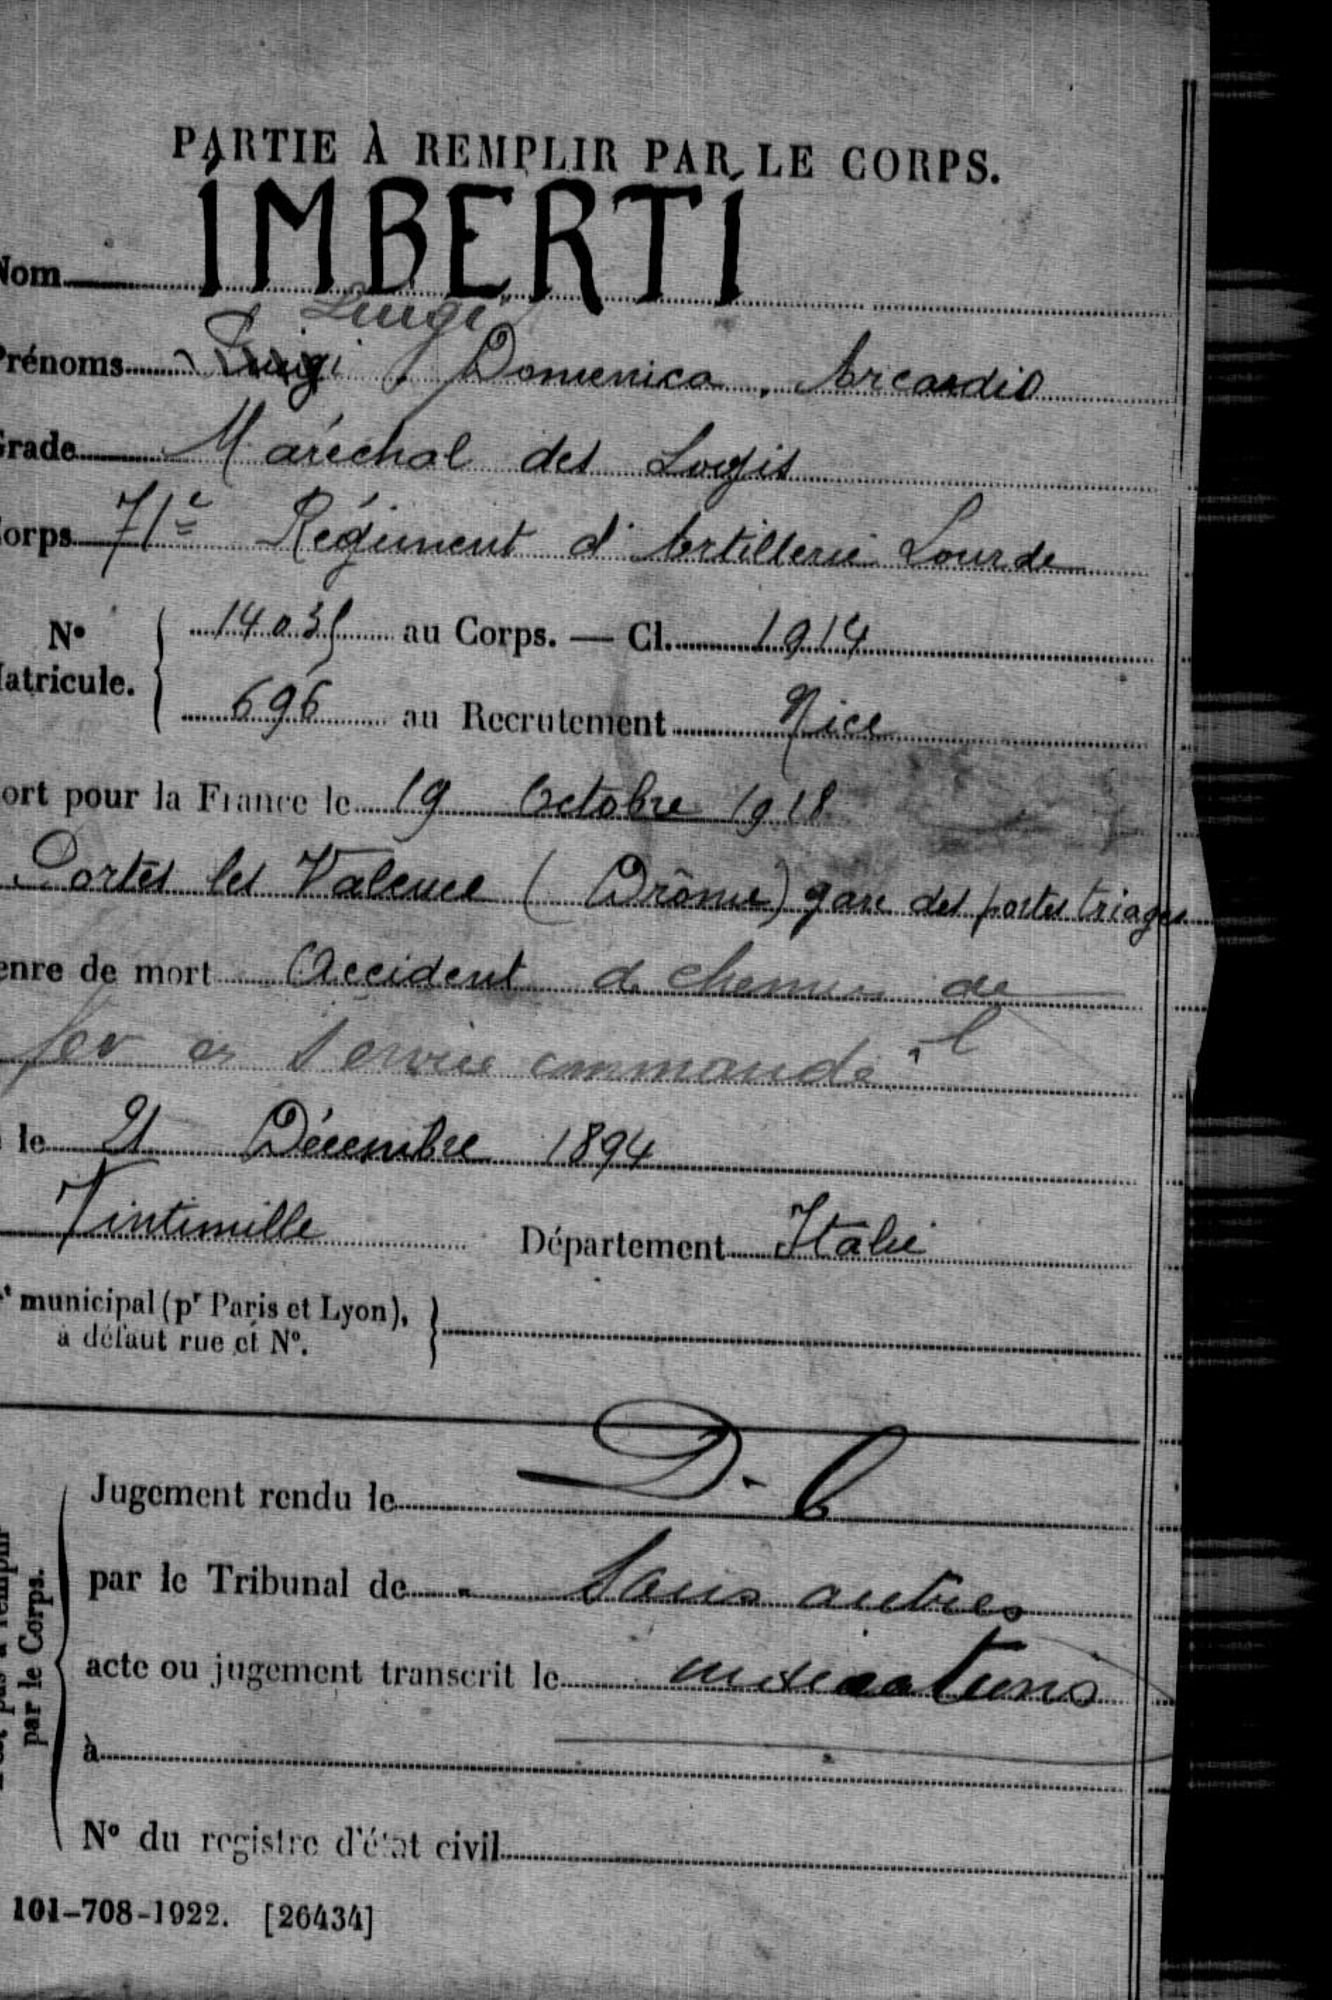 PARTIE À REMPLIR PAR LE CORPS.
Nom IMBERTI
Luigi
Prénoms Luigi, Domenica, Arcadio
Grade Maréchal des Logis
Corps 71e Régiment d'Artillerie Lourde
N° 14035 au Corps. — Cl. 1914
Matricule. 696 au Recrutement Nice
ort pour la France le 19 Octobre 1918
Portes les Valence (Drôme) gare des portes triages
enre de mort Accident de chemin de
fer en Service commandé
le 21 Décembre 1894
Vintimille Département Italie
t municipal (pr Paris et Lyon),
à défaut rue et N°.
Jugement rendu le D. C
par le Tribunal de Sans autres
acte ou jugement transcrit le indications
à
N° du registre d'état civil
par le Corps.
101-708-1922. [26434]